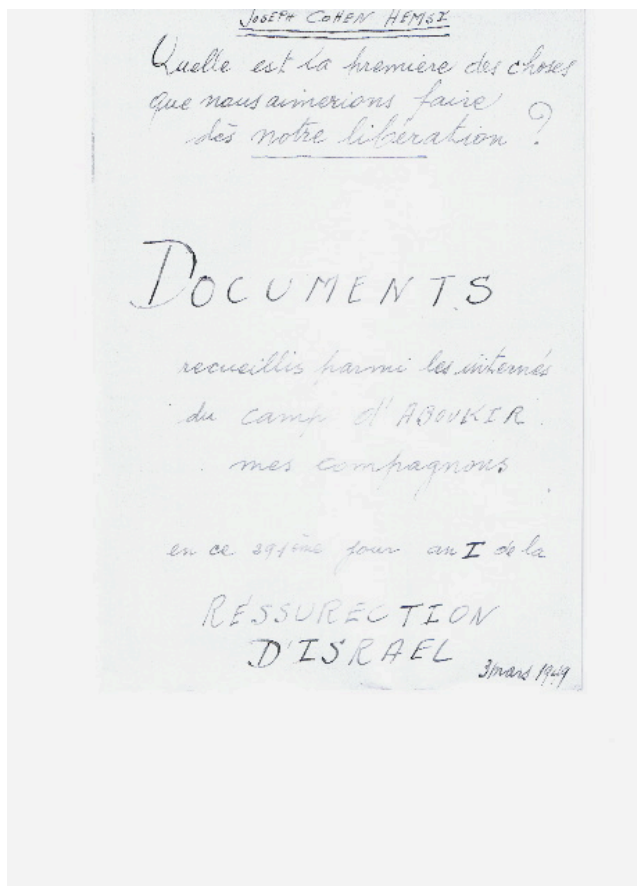 JOSEPH COHEN HEMSI
Quelle est la premiere des choses
que nous aimerions faire
dès notre libération ?
DOCUMENTS
recueillis parmi les internés
du camp d'ABOUKIR
mes compagnons
en ce 291ème jour an I de la
RÉSSURECTION
D'ISRAEL
3 mars 1949